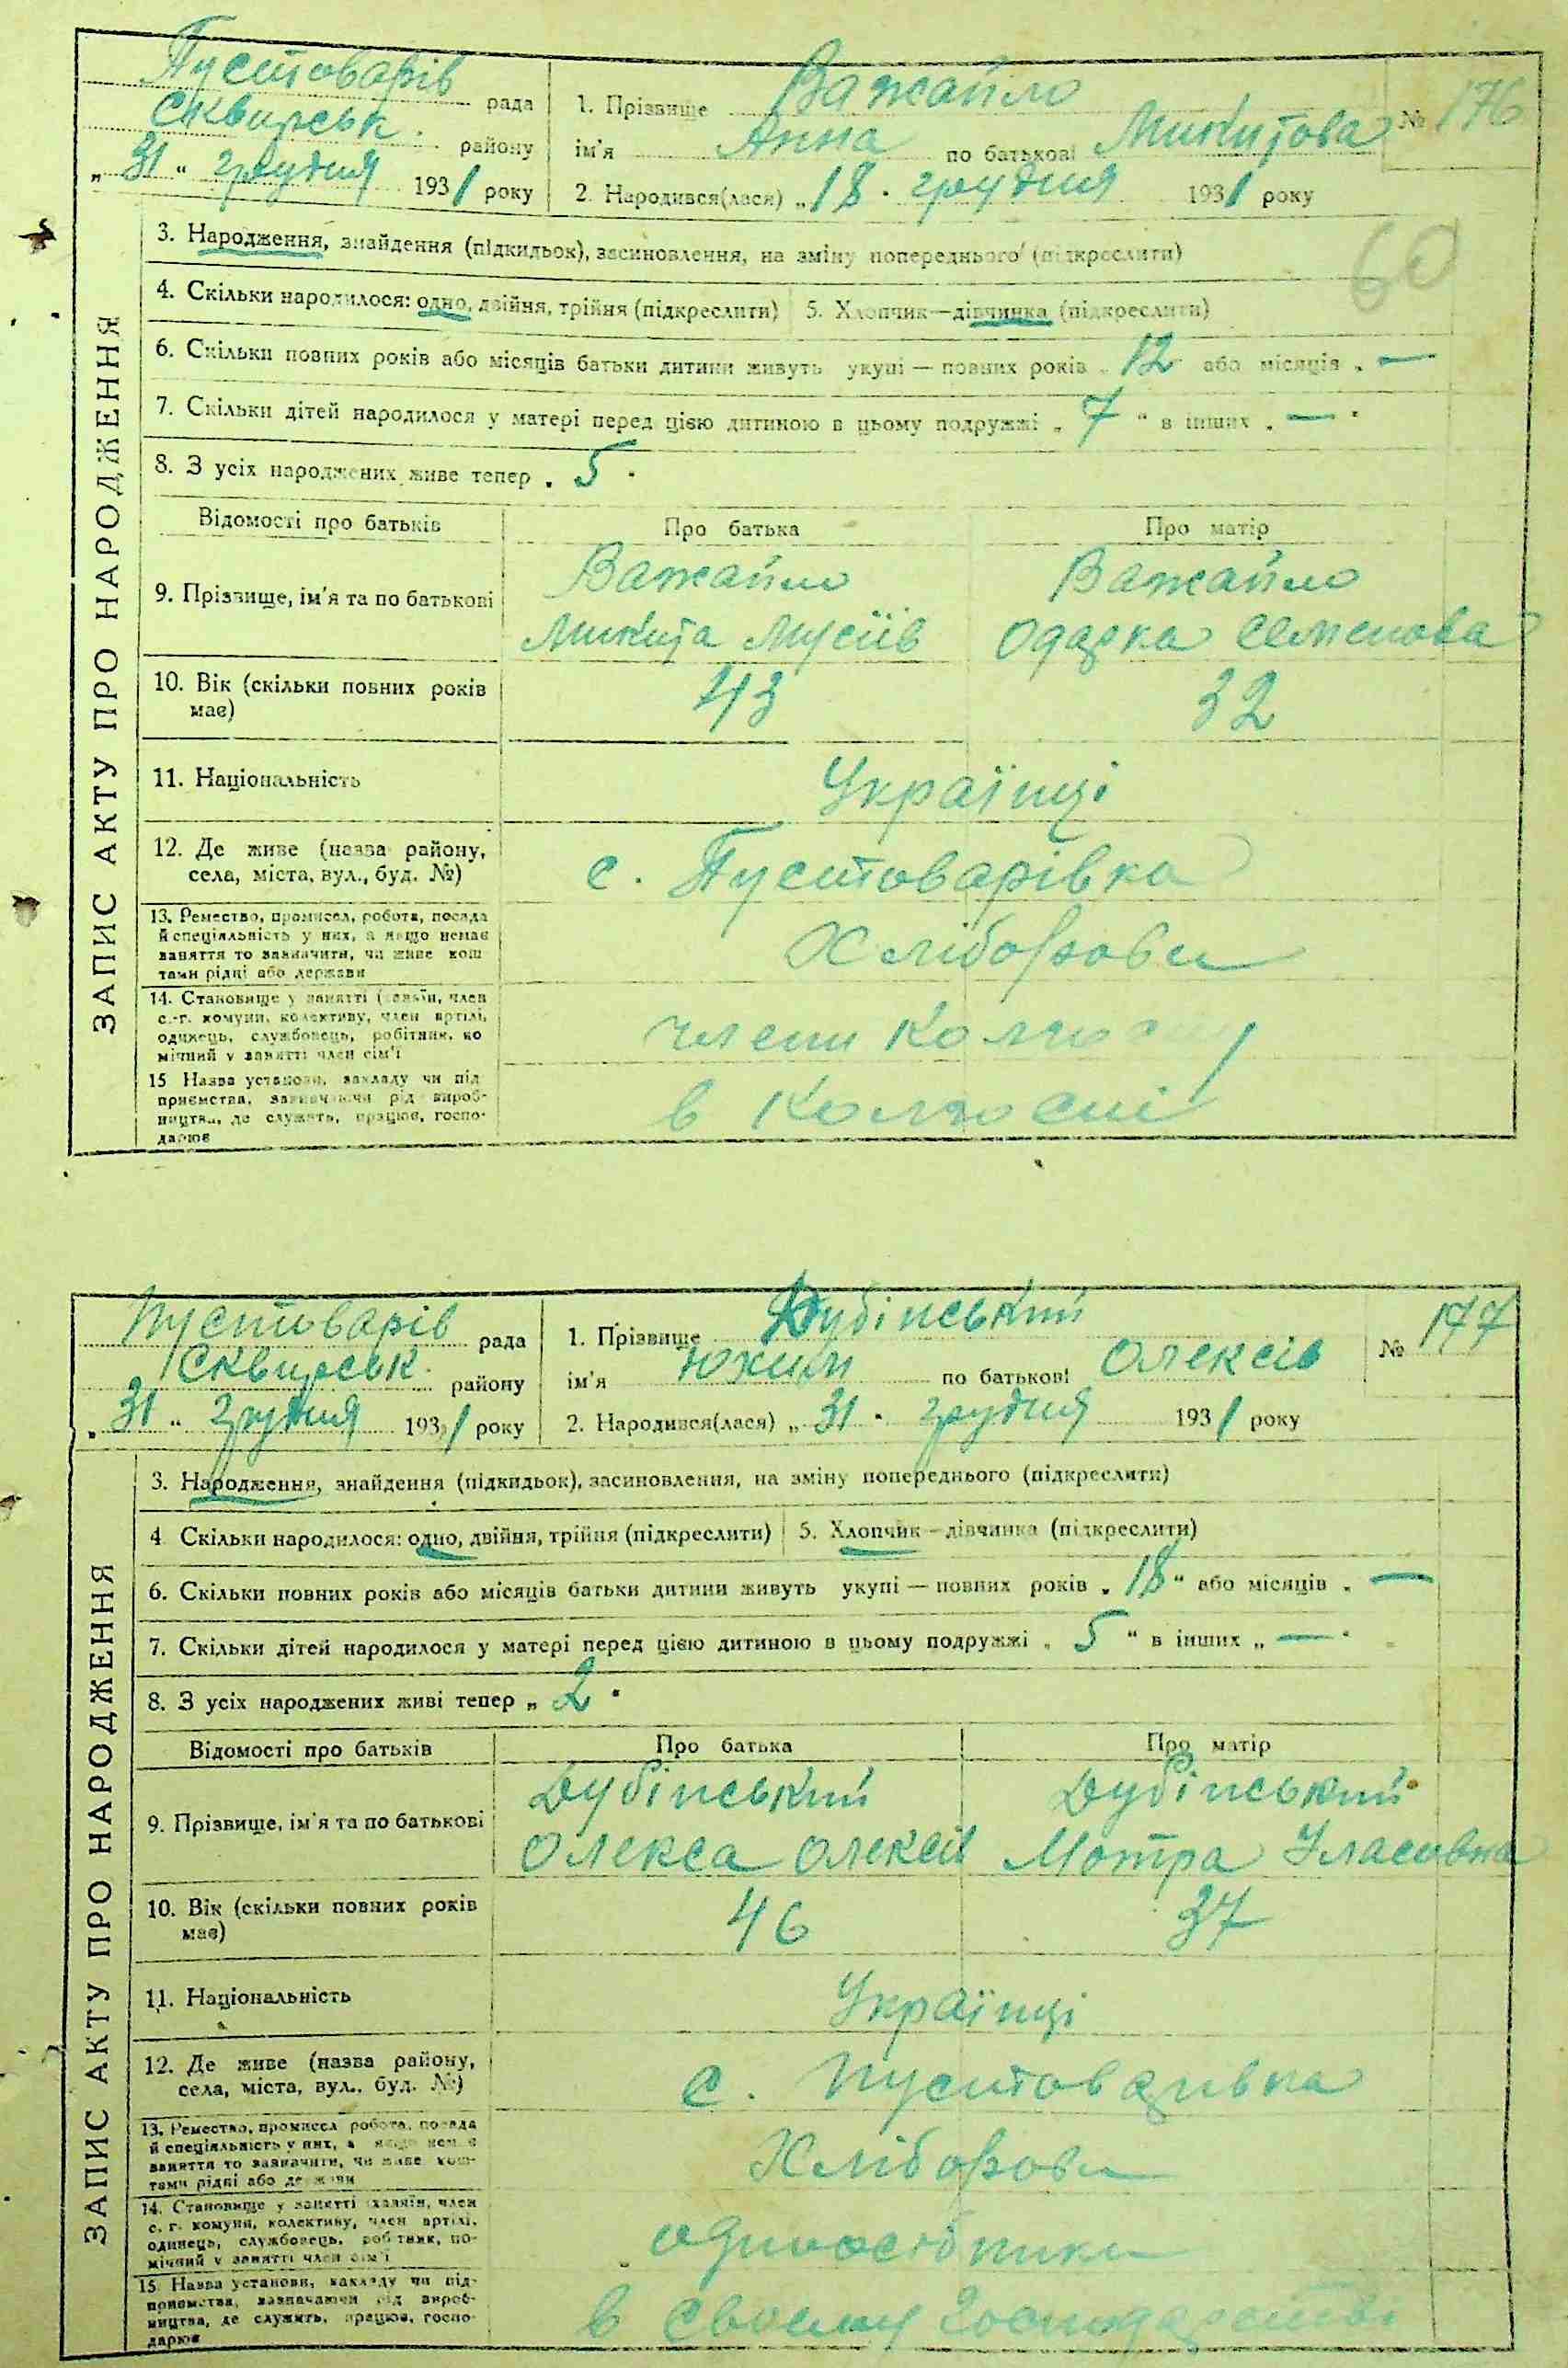 ЗАПИС АКТУ ПРО НАРОДЖЕННЯ
Пустоварів рада
Сквирськ. району
„31“ грудня 1931 року
1. Прізвище Важайло
ім'я Анна по батькові Микитова
№ 176
2. Народився(лася) „18" грудня 1931 року
60
3. Народження, знайдення (підкидьок), засиновлення, на зміну попереднього (підкреслити)
4. Скільки народилося: одно, двійня, трійня (підкреслити) 5. Хлопчик—дівчинка (підкреслити)
6. Скільки повних років або місяців батьки дитини живуть укупі — повних років „12 або місяців „—
7. Скільки дітей народилося у матері перед цією дитиною в цьому подружжі „7“ в інших „—"
8. З усіх народжених живе тепер „5"
Відомості про батьків Про батька Про матір
9. Прізвище, ім'я та по батькові
Важайло Важайло
Микита Мусіїв Одарка Семенова
10. Вік (скільки повних років має) 43 32
11. Національність Українці
12. Де живе (назва району, села, міста, вул., буд. №) с. Пустоварівка
13. Ремество, промисел, робота, посада
й спеціяльність у них, а якщо немає
заняття то зазначити, чи живе кош
тами рідні або держави
Хлібороби
14. Становище у занятті (хазяїн, член
с.-г. комуни, колективу, член артілі,
одинець, службовець, робітник, по
мічний у занятті член сім'ї
члени
15 Назва установи, закладу чи під
приємства, зазначаючи рід вироб-
ництва, де служить, працює, госпо-
дарює
в колгоспі
ЗАПИС АКТУ ПРО НАРОДЖЕННЯ
Пустоварів рада
Сквирськ. району
„31“ грудня 1931 року
1. Прізвище Дубінський
ім'я Юхим по батькові Олексів
№ 177
2. Народився(лася) „31" грудня 1931 року
3. Народження, знайдення (підкидьок), засиновлення, на зміну попереднього (підкреслити)
4 Скільки народилося: одно, двійня, трійня (підкреслити) 5. Хлопчик—дівчинка (підкреслити)
6. Скільки повних років або місяців батьки дитини живуть укупі — повних років „18“ або місяців „—
7. Скільки дітей народилося у матері перед цією дитиною в цьому подружжі „5“ в інших „—"
8. З усіх народжених живі тепер „2"
Відомості про батьків Про батька Про матір
9. Прізвище, ім'я та по батькові
Дубінський Дубінський
Олекса Олексів Мотра Уласовна
10. Вік (скільки повних років має) 46 37
11. Національність Українці
12. Де живе (назва району, села, міста, вул., буд. №) с. Пустоварівка
13. Ремество, промисел робота, посада
й спеціяльність у них, а якщо немає
заняття то зазначити, чи живе кош-
тами рідні або держави
Хлібороби
14. Становище у занятті хазяїн, член
с. г. комуни, колективу, член артілі,
одинець, службовець, робітник, по-
мічний у занятті член сім'ї
одиноосібники
15 Назва установи, закладу чи під-
приємства, зазначаючи рід вироб-
ництва, де служить, працює, госпо-
дарює
в своєму господарстві